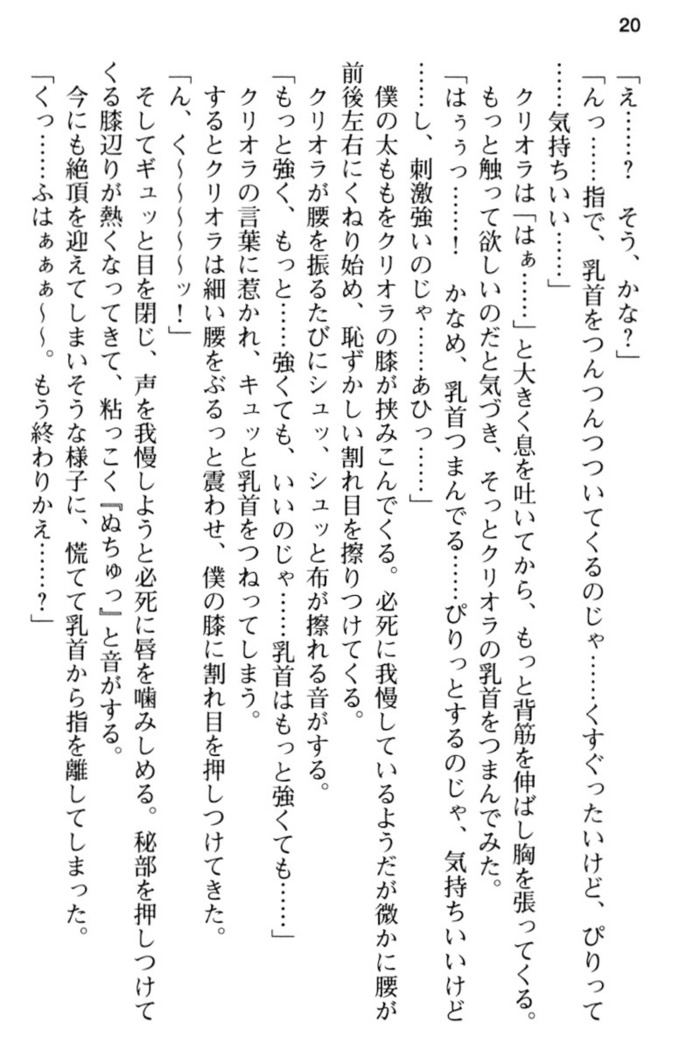 20
「え……?　そう、かな?」
「んっ……指で、乳首をつんつんつついてくるのじゃ……くすぐったいけど、ぴりって
……気持ちいい……」
クリオラは「はぁ……」と大きく息を吐いてから、もっと背筋を伸ばし胸を張ってくる。
もっと触って欲しいのだと気づき、そっとクリオラの乳首をつまんでみた。
「はぅぅっ……!　かなめ、乳首つまんでる……ぴりっとするのじゃ、気持ちいいけど
……し、刺激強いのじゃ……あひっ……」
僕の太ももをクリオラの膝が挟みこんでくる。必死に我慢しているようだが微かに腰が
前後左右にくねり始め、恥ずかしい割れ目を擦りつけてくる。
クリオラが腰を振るたびにシュッ、シュッと布が擦れる音がする。
「もっと強く、もっと……強くても、いいのじゃ……乳首はもっと強くても……」
クリオラの言葉に惹かれ、キュッと乳首をつねってしまう。
するとクリオラは細い腰をぶるっと震わせ、僕の膝に割れ目を押しつけてきた。
「ん、く～～～～～ッ!」
そしてギュッと目を閉じ、声を我慢しようと必死に唇を噛みしめる。秘部を押しつけて
くる膝辺りが熱くなってきて、粘っこく『ぬちゅっ』と音がする。
今にも絶頂を迎えてしまいそうな様子に、慌てて乳首から指を離してしまった。
「くっ……ふはぁぁぁ～～。もう終わりかえ……?」